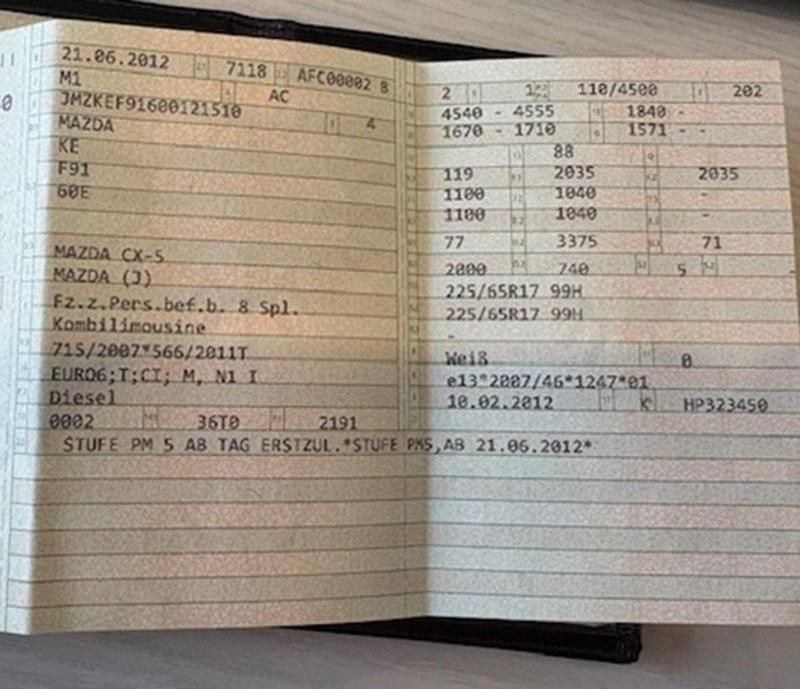 21.06.2012 7118 AFC00002 8
M1 AC
JMZKEF91600121510 4
MAZDA
KE
F91
60E
MAZDA CX-5
MAZDA (J)
Fz.z.Pers.bef.b. 8 Spl.
Kombilimousine
715/2007*566/2011T
EURO6;T;CI; M, N1 I
Diesel
0002 36T0 2191
STUFE PM 5 AB TAG ERSTZUL.*STUFE PM5,AB 21.06.2012*
2 110/4500 202
4540 - 4555 1840 -
1670 - 1710 1571 - -
88
119 2035 2035
1100 1040 -
1100 1040 -
77 3375 71
2000 740 5 -
225/65R17 99H
225/65R17 99H
-
Weiß 0
e13*2007/46*1247*01
10.02.2012 K HP323450